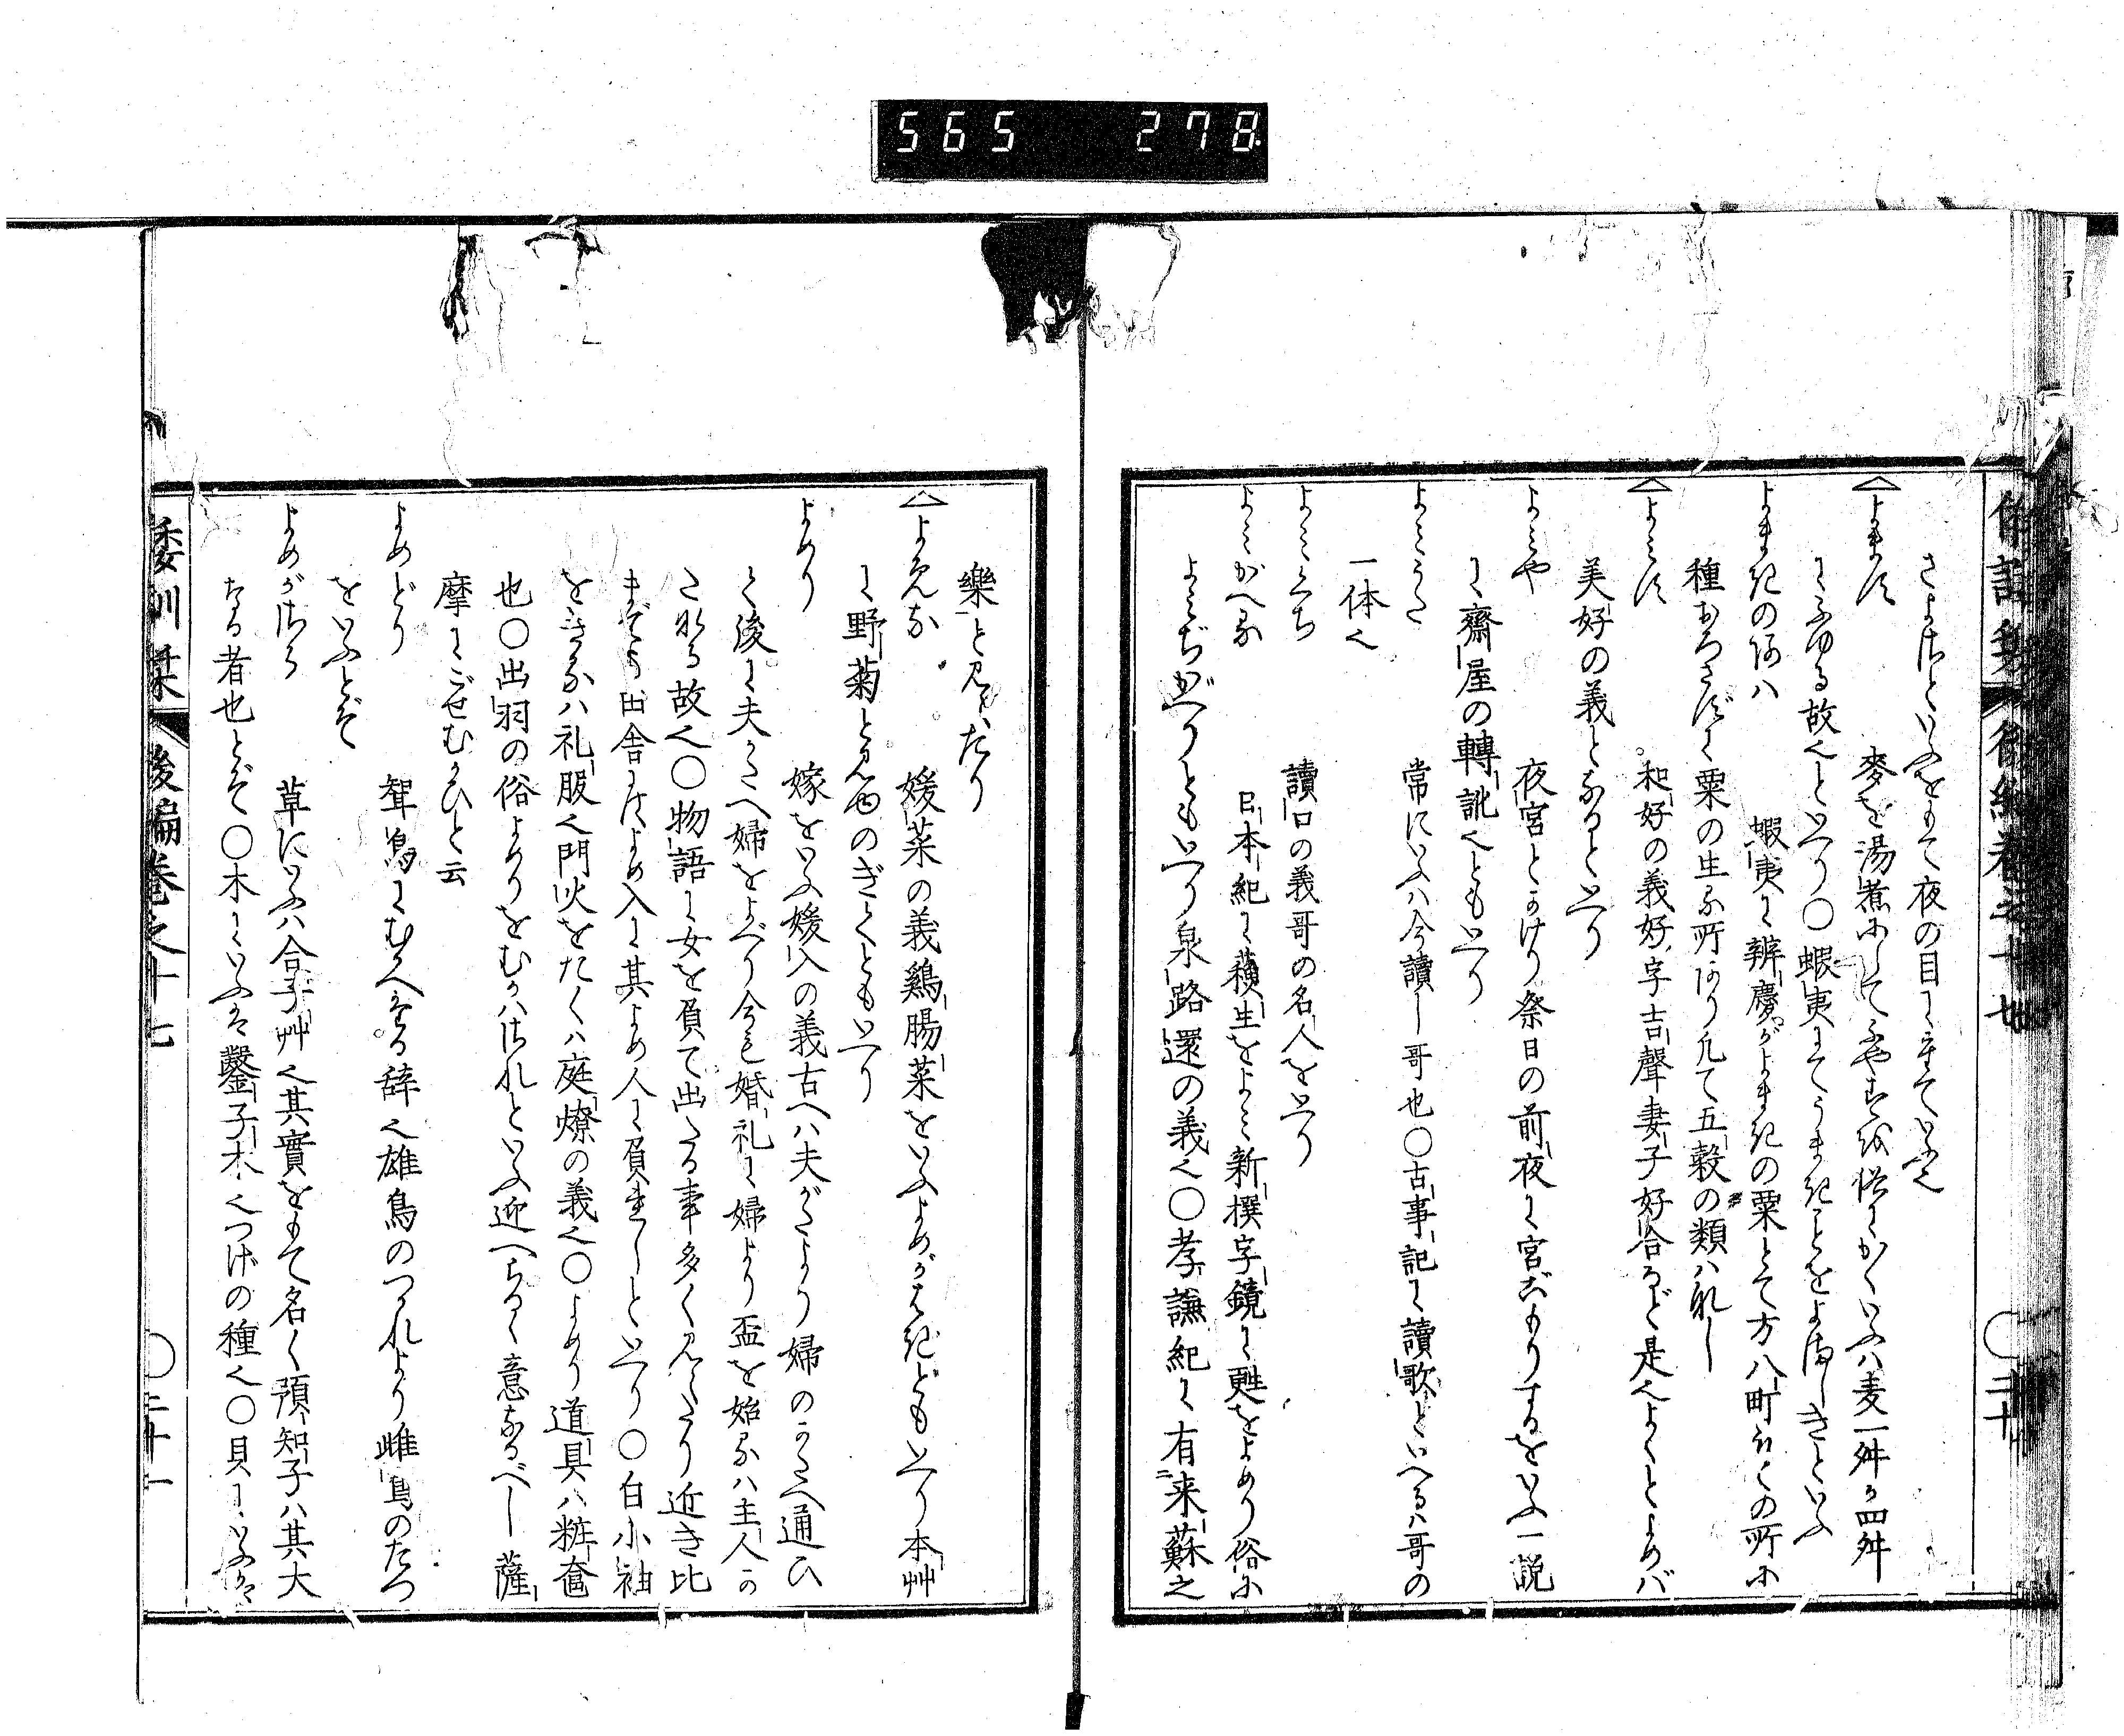 565 278
さよはといふをもて夜の目にあていふ也
よます 麥を湯煮にしてふやすを俗にかくいふハ麦一舛が四舛
にふゆる故也といへり〇蝦夷にてうまきことをよましきといふ
よまきのあハ 蝦夷に辨慶がよまきの粟とて方八町ほどの所に
種おろさずして粟の生る所あり凡て五穀の類ハなし
よミす 和好の義好字吉聲妻子好合など是也よくとよめバ
美好の義となるといへり
よミや 夜宮とかけり祭日の前夜に宮ごもりするをいふ一説
に齋屋の轉訛也ともいへり
よミうた 常にいふハ今讀し哥也〇古事記に讀歌といへるハ哥の
一体也
よミくち 讀口の義哥の名人をいへり
よミがへる 日本紀に蘓生をよミ新撰字鏡に甦をよめり俗に
よミぢがへりともいへり泉路還の義也〇孝謙紀に有来蘇之
樂と見えたり
よめな 媛菜の義鷄腸菜をいふよめがはぎともいへり本艸
に野菊と見ゆのぎくともいへり
よめり 嫁をいふ媛入の義古へハ夫がたより婦のかたへ通ひ
て後に夫かたへ婦をよべり今も婚礼に婦より盃を始るハ主人か
たなる故也〇物語に女を負て出たる事多く見えたり近き比
までも田舎にはよめ入に其よめ人に負れしといへり〇白小袖
をきるハ礼服也門火をたくハ庭燎の義也〇よめり道具ハ粧奩
也〇出羽の俗よめりをむかはれといふ迎へらるゝ意なるべし薩
摩にごせむかひと云
よめどり 聟鳥にむかへたる辞也雄鳥のつかれより雌鳥のたつ
をいふとぞ
よめがはら 草にいふハ合子艸也其實をもて名く預知子ハ其大
なる者也とぞ〇木にいふは鑿子木也つげの種也〇貝にいふは
倭訓栞 後編巻之十七 〇二十一
〇二十